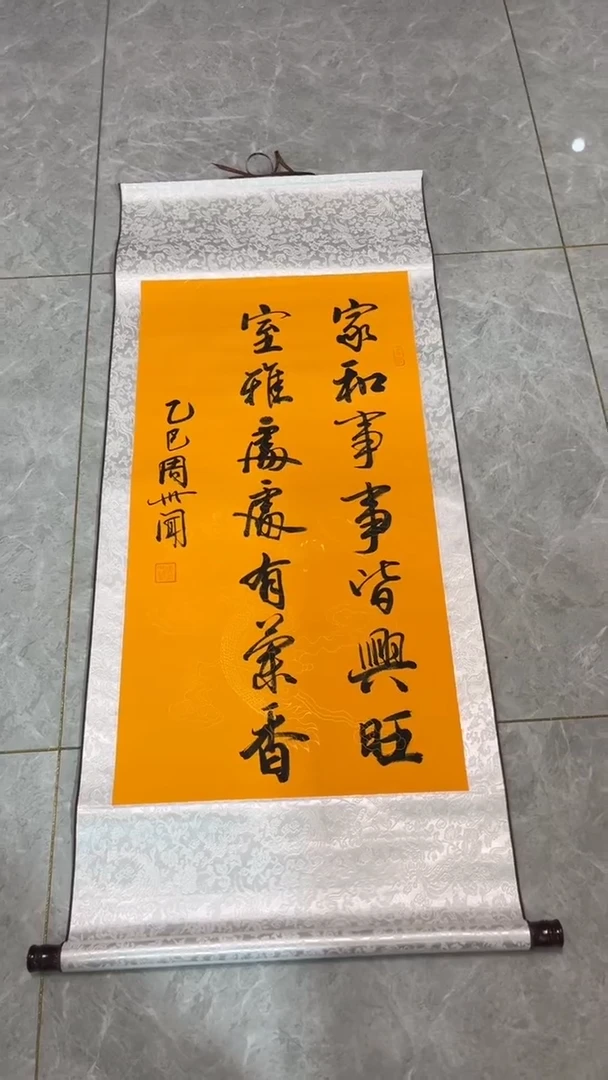 家和事事皆興旺
室雅處處有蘭香
乙巳周州聞